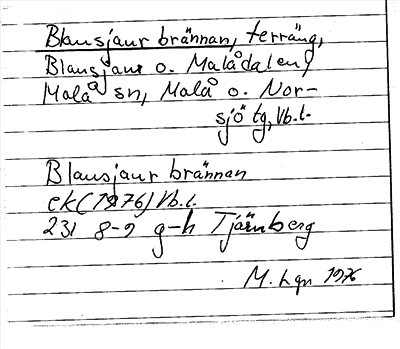 Blausjaur brännan, terräng,
Blausjaur o. Malådalen,
Malå sn, Malå o. Nor-
sjö tg, Vb.l.
Blausjaur brännan
ek (1976) Vb.l.
231 8-9 g-h Tjärnberg
M. Lgn 1976